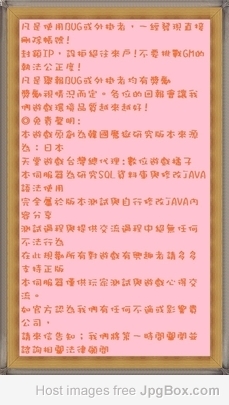 凡是使用BUG或外掛者，一經發現直接
刪除帳號!
封鎖IP，設拒絕往來戶!不要挑戰GM的
執法公正度!
凡是舉報BUG或外掛者均有獎勵
獎勵視情況而定。各位的回報會讓我
們遊戲環境品質越來越好!
◎免責聲明:
本遊戲原創為韓國 研究版本來源
為：日本
天堂遊戲台灣總代理:數位遊戲橘子
本伺服器為研究SQL資料庫與修改JAVA
語法使用
完全屬於版本測試與自行修改JAVA內
容分享
測試過程與提供交流過程中絕無任何
不法行為
在此規勸所有對遊戲有興趣者請多多
支持正版
本伺服器僅供玩家測試與遊戲心得交
流。
如官方認為我們有任何不適或影響貴
公司，
請來信告知；我們將第一時間
諮詢相關法律
Host images free JpgBox.com